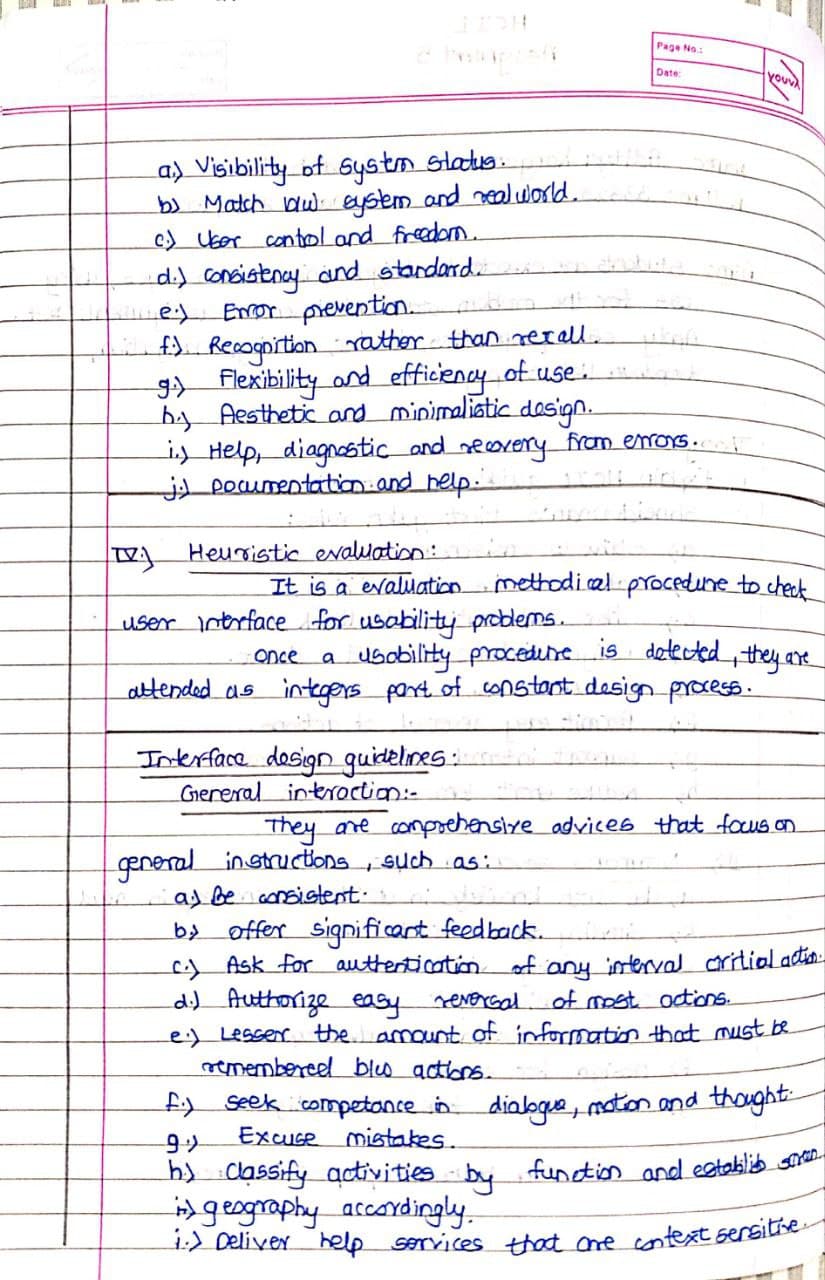 Page No.:
Date:
youva
a.) Visibility of system status.
b) Match b/w system and real world.
c.) User control and freedom.
d.) consistency and standard.
e.) Error prevention.
f.) Recognition rather than recall.
g.) Flexibility and efficiency of use.
h.) Aesthetic and minimalistic design.
i.) Help, diagnostic and recovery from errors.
j.) Documentation and help.
IV.) Heuristic evaluation:
It is a evaluation methodical procedure to check
user interface for usability problems.
Once a usability procedure is detected, they are
attended as integers part of constant design process.
Interface design guidelines:
General interaction:-
They are comprehensive advices that focus on
general instructions, such as:
a.) Be consistent.
b) offer significant feedback.
c.) Ask for authentication of any interval critial action.
d.) Authorize easy reversal of most actions.
e.) Lesser the amount of information that must be
remembered b/w actions.
f.) seek competance in dialogue, motion and thought.
g.) Excuse mistakes.
h) classify activities by function and establib
geography accordingly.
i.) Deliver help services that are context sensitive.